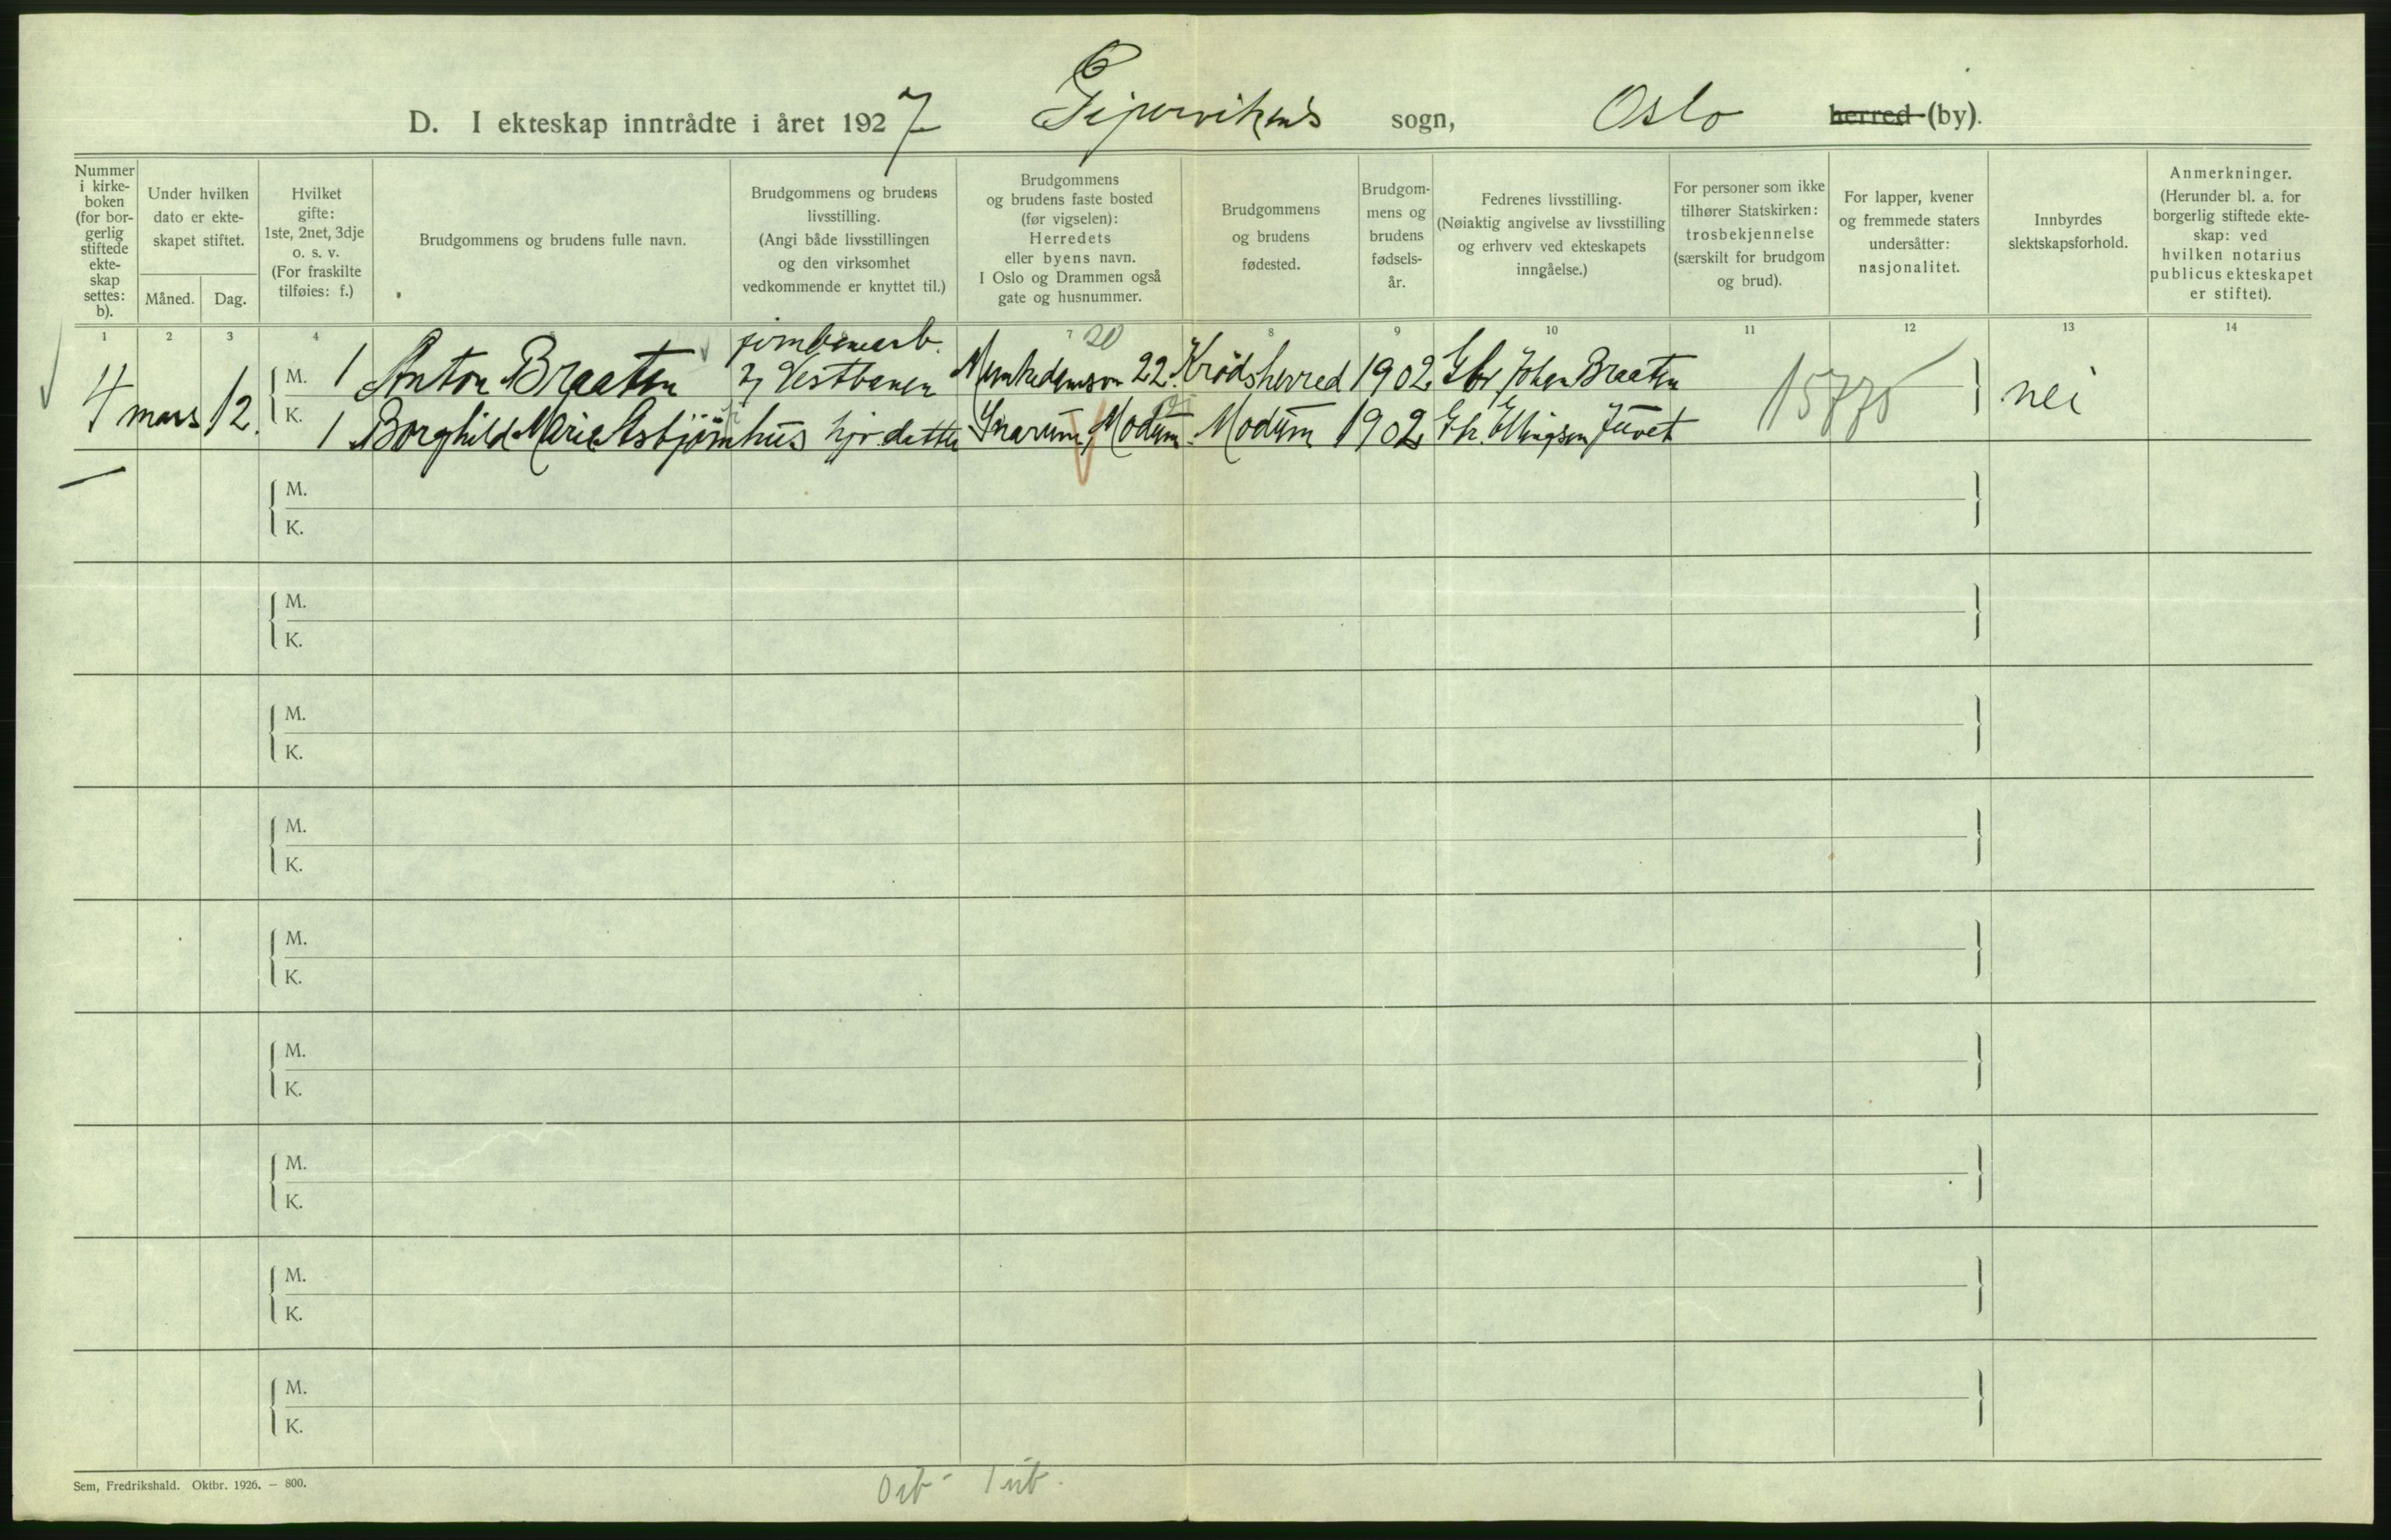 D. I ekteskap inntrådte i året 1927 Pipervikens sogn, Oslo herred (by).
Nummer i kirkeboken (for borgerlig stiftede ekteskap settes: b).
Under hvilken dato er ekteskapet stiftet.
Måned. Dag.
Hvilket gifte: 1ste, 2net, 3dje o. s. v. (For fraskilte tilføies: f.)
Brudgommens og brudens fulle navn.
Brudgommens og brudens livsstilling. (Angi både livsstillingen og den virksomhet vedkommende er knyttet til.)
Brudgommens og brudens faste bosted (før vigselen): Herredets eller byens navn. I Oslo og Drammen også gate og husnummer.
Brudgommens og brudens fødested.
Brudgommens og brudens fødselsår.
Fedrenes livsstilling. (Nøiaktig angivelse av livsstilling og erhverv ved ekteskapets inngåelse.)
For personer som ikke tilhører Statskirken: trosbekjennelse (særskilt for brudgom og brud).
For lapper, kvener og fremmede staters undersåtter: nasjonalitet.
Innbyrdes slektskapsforhold.
Anmerkninger. (Herunder bl. a. for borgerlig stiftede ekteskap: ved hvilken notarius publicus ekteskapet er stiftet).
1 2 3 4 5 6 7 8 9 10 11 12 13 14
20
4 mars 12. M. 1 Anton Braaten jernbanearb. v Vestbanen Munkedamsvn 22. Krødsherred 1902 Gbr. Johan Braaten 15775 nei
K. 1 Borghild Marie Asbjørnhus hjv. datter Snarum, Modum. Modum 1902 Ellingsen Juvet
M.
K.
M.
K.
M.
K.
M.
K.
M.
K.
M.
K.
M.
K.
M.
K.
M.
K.
Sem, Fredrikshald. Oktbr. 1926. — 800.